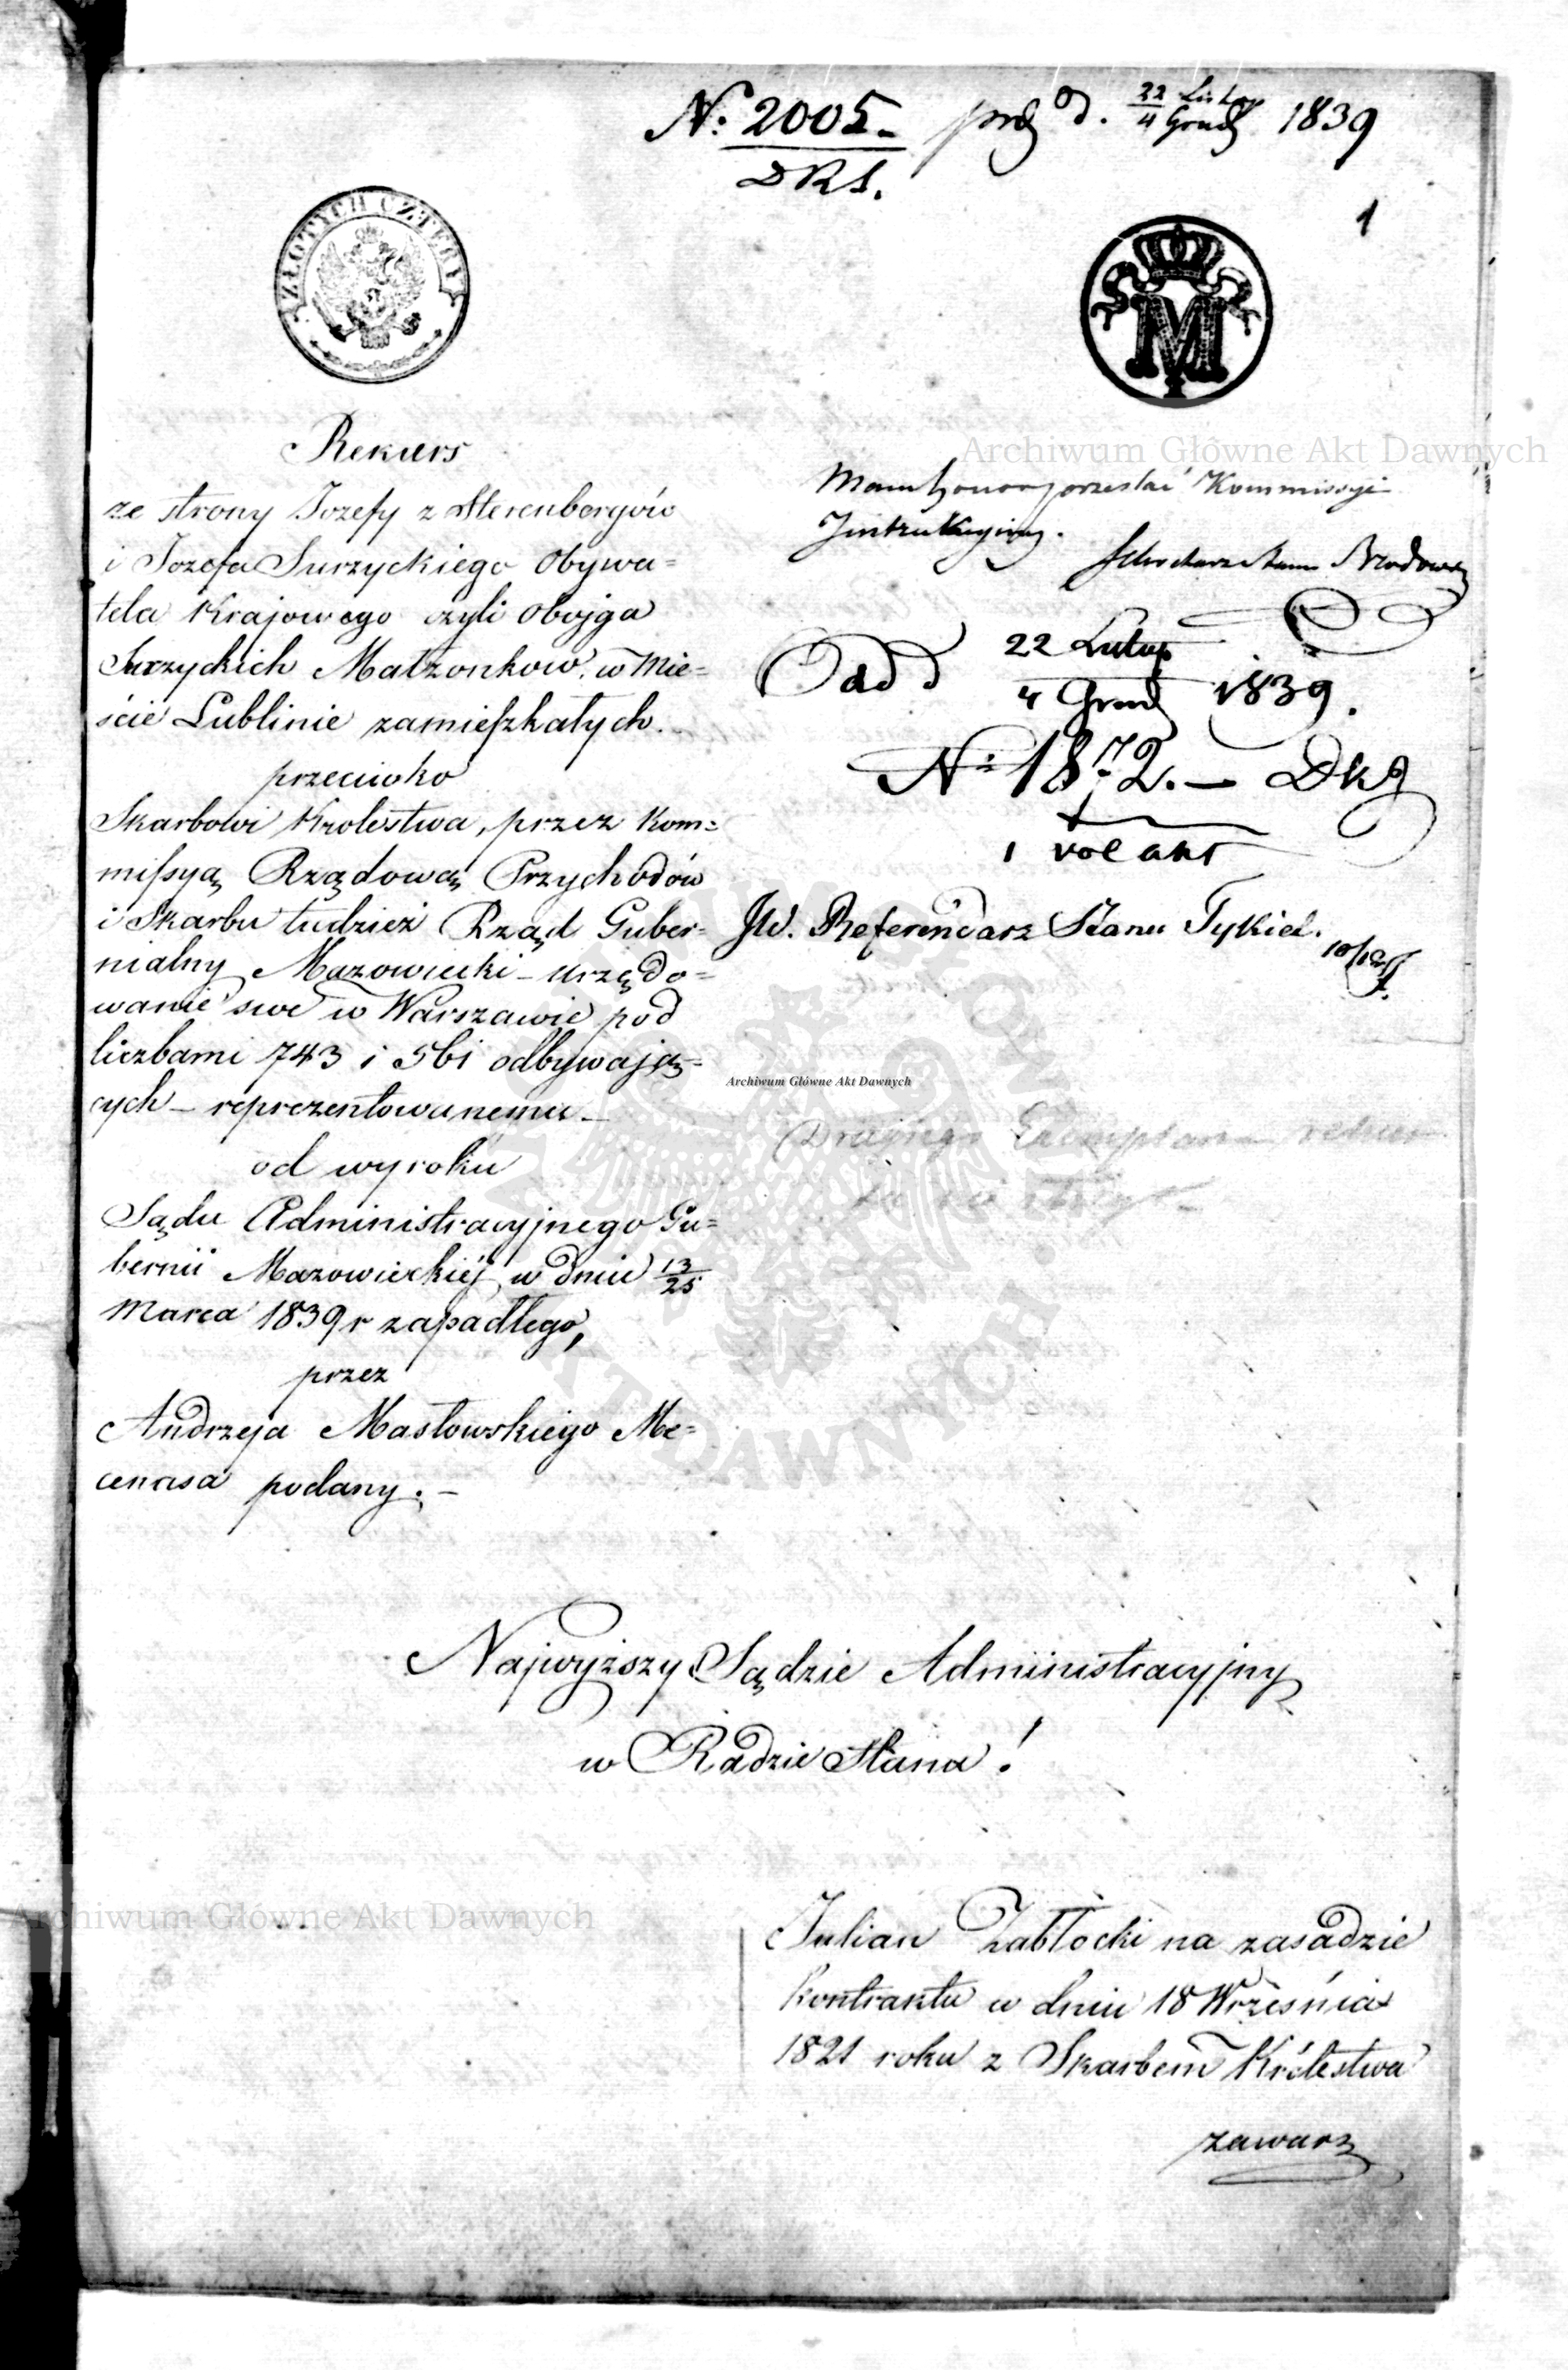 N: 2005.
DRS.
prd d. 22 Listop 1839
4 Grud
1
ZŁOTYCH CZTERY
M
Archiwum Główne Akt Dawnych
Rekurs
ze strony Jozefy z Sterenbergów
i Jozefa Surzyckiego Obywa=
tela Krajowego czyli obojga
Surzyckich Małżonków, w Mie=
ście Lublinie zamieszkałych.
przeciwko
Skarbowi Krolestwa, przez Kom=
missyą Rządową Przychodów
i Skarbu tudzież Rząd Guber=
nialny Mazowiecki – urzędo=
wanie swe w Warszawie pod
liczbami 743 i 561 odbywają=
cych – reprezentowanemu –
od wyroku
Sądu Administracyjnego Gu=
bernii Mazowieckiéj w dniu 13/25
Marca 1839 r zapadłego,
przez
Andrzeja Masłowskiego Me=
cenasa podany. –
Mam honor przesłać Kommissyi
Instrukcyjney.
Stanu
22 Listop
Odd 4 Grud 1839.
No 1872. – DKJ
1 vol akt
JW. Referendarz Stanu Tykiel.
10/12
Archiwum Główne Akt Dawnych
Drugiego Exemplarza rekur
su nie
ARCHIWUM GŁÓWNE AKT DAWNYCH
Najwyższy Sądzie Administracyjny
w Radzie Stanu!
Archiwum Główne Akt Dawnych
Julian Zabłocki na zasadzie
kontraktu w dniu 18 Września
1821 roku z Skarbem Królestwa
zawar